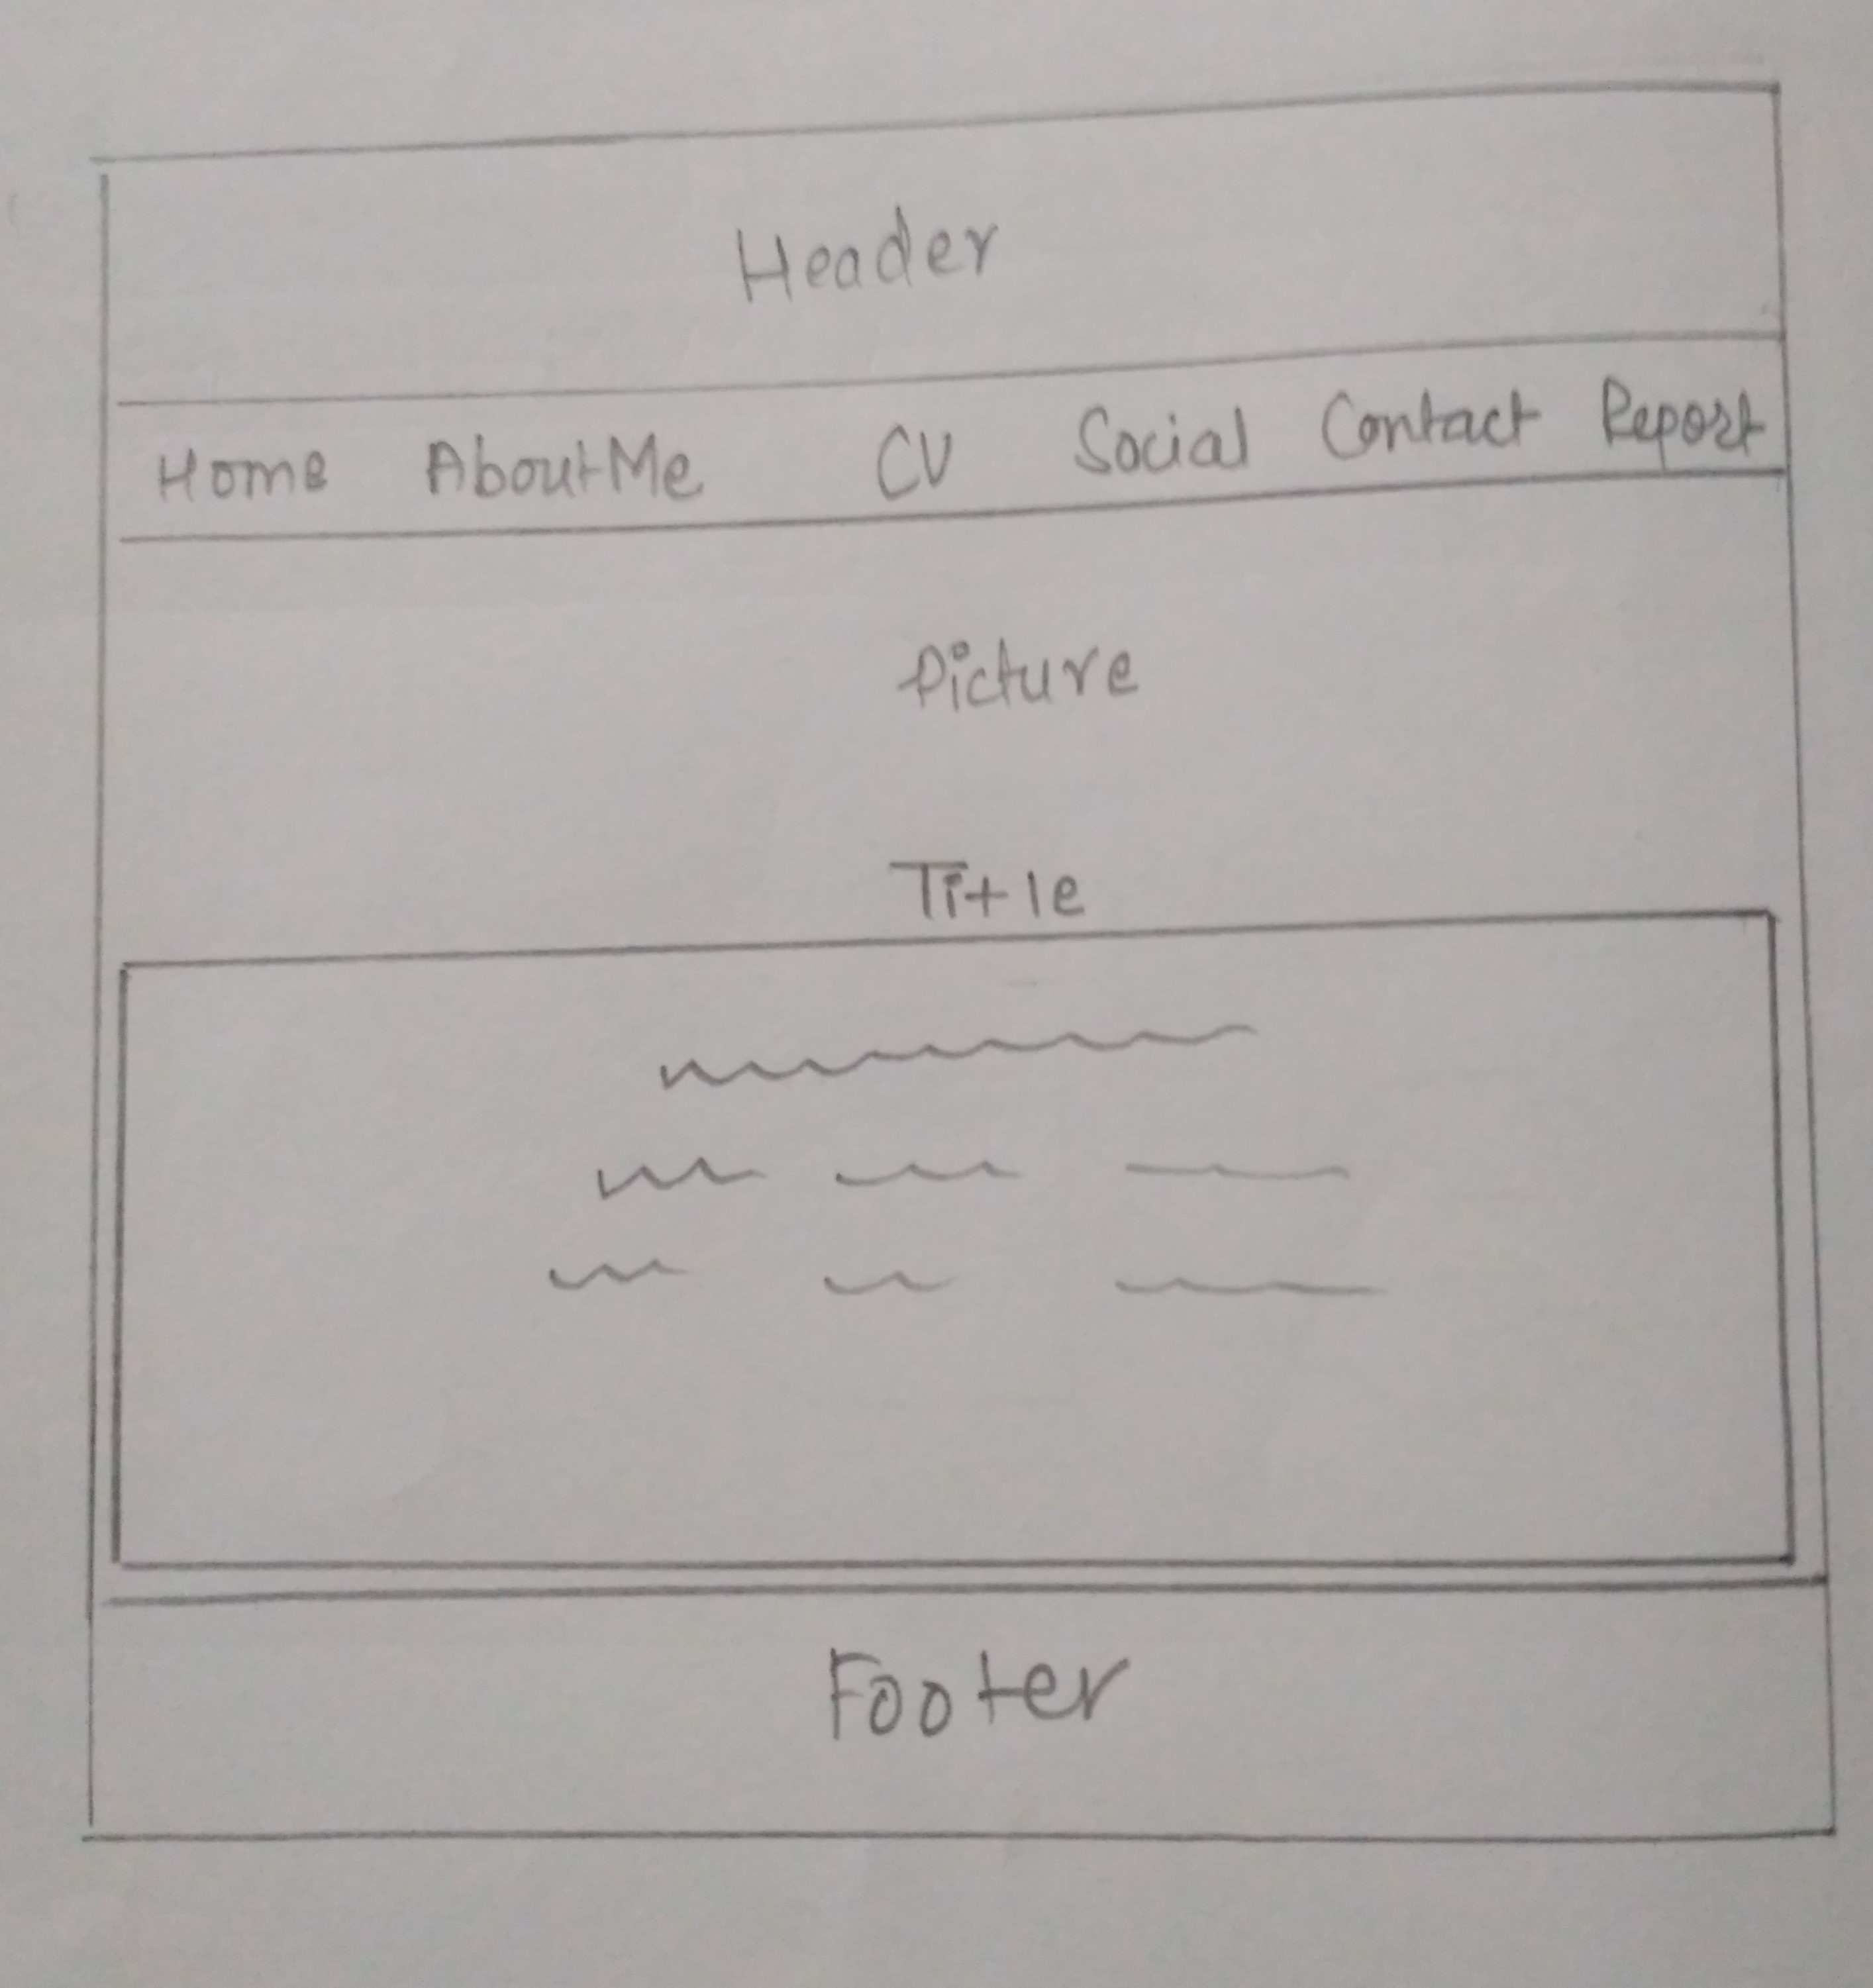 Header
Home AboutMe CV Social Contact Report
Picture
Title
Footer